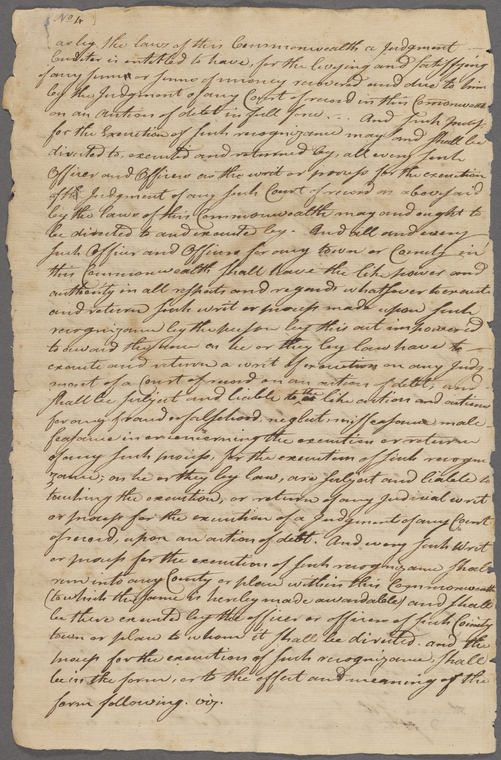 No 4
as by the laws of this Commonwealth a Judgment
Creditor is entitled to have, for the levying and satisfying
of any sum or sums of money recovered and due to him
by the Judgment of any Court of record in this Commonwealth
on an action of debt in full force... And such process
for the Execution of such recognizance may and shall be
directed to, executed and returned by, all every such
Officer and Officers as the writ or process for the execution
of the Judgment of any such Court of record as abovesaid
by the laws of this Commonwealth may and ought to
be directed to and executed by: And all and every
such Officer and Officers for any town or County in
this Commonwealth shall have the like power and
authority in all respects and regards whatsoever to execute
and return such writ or process made upon such
recognizance by the person by this act impowered
to award the same as he or they by law have to
execute and return a writ of execution on any Judg-
ment of a Court of record on an action of debt, and
shall be subject and liable to the like action and actions
for any fraud or falsehood, neglect misfeasance male
feasance in or concerning the execution or return
of any such process, for the execution of such recogni-
zance; as he or they by law, are subject and liable to
touching the execution, or return of any Judicial writ
or process for the execution of a Judgment of any Court
of record, upon an action of debt. And every such Writ
or process for the execution of such recognizance shall
run into any County or place within this Commonwealth
(to which the same is hereby made awardable) and shall
be there executed by the officer or officers of such County
town or place to whom it shall be directed. and the
process for the execution of such recognizance shall
be in the form, or to the effect and meaning of the
form following. viz.